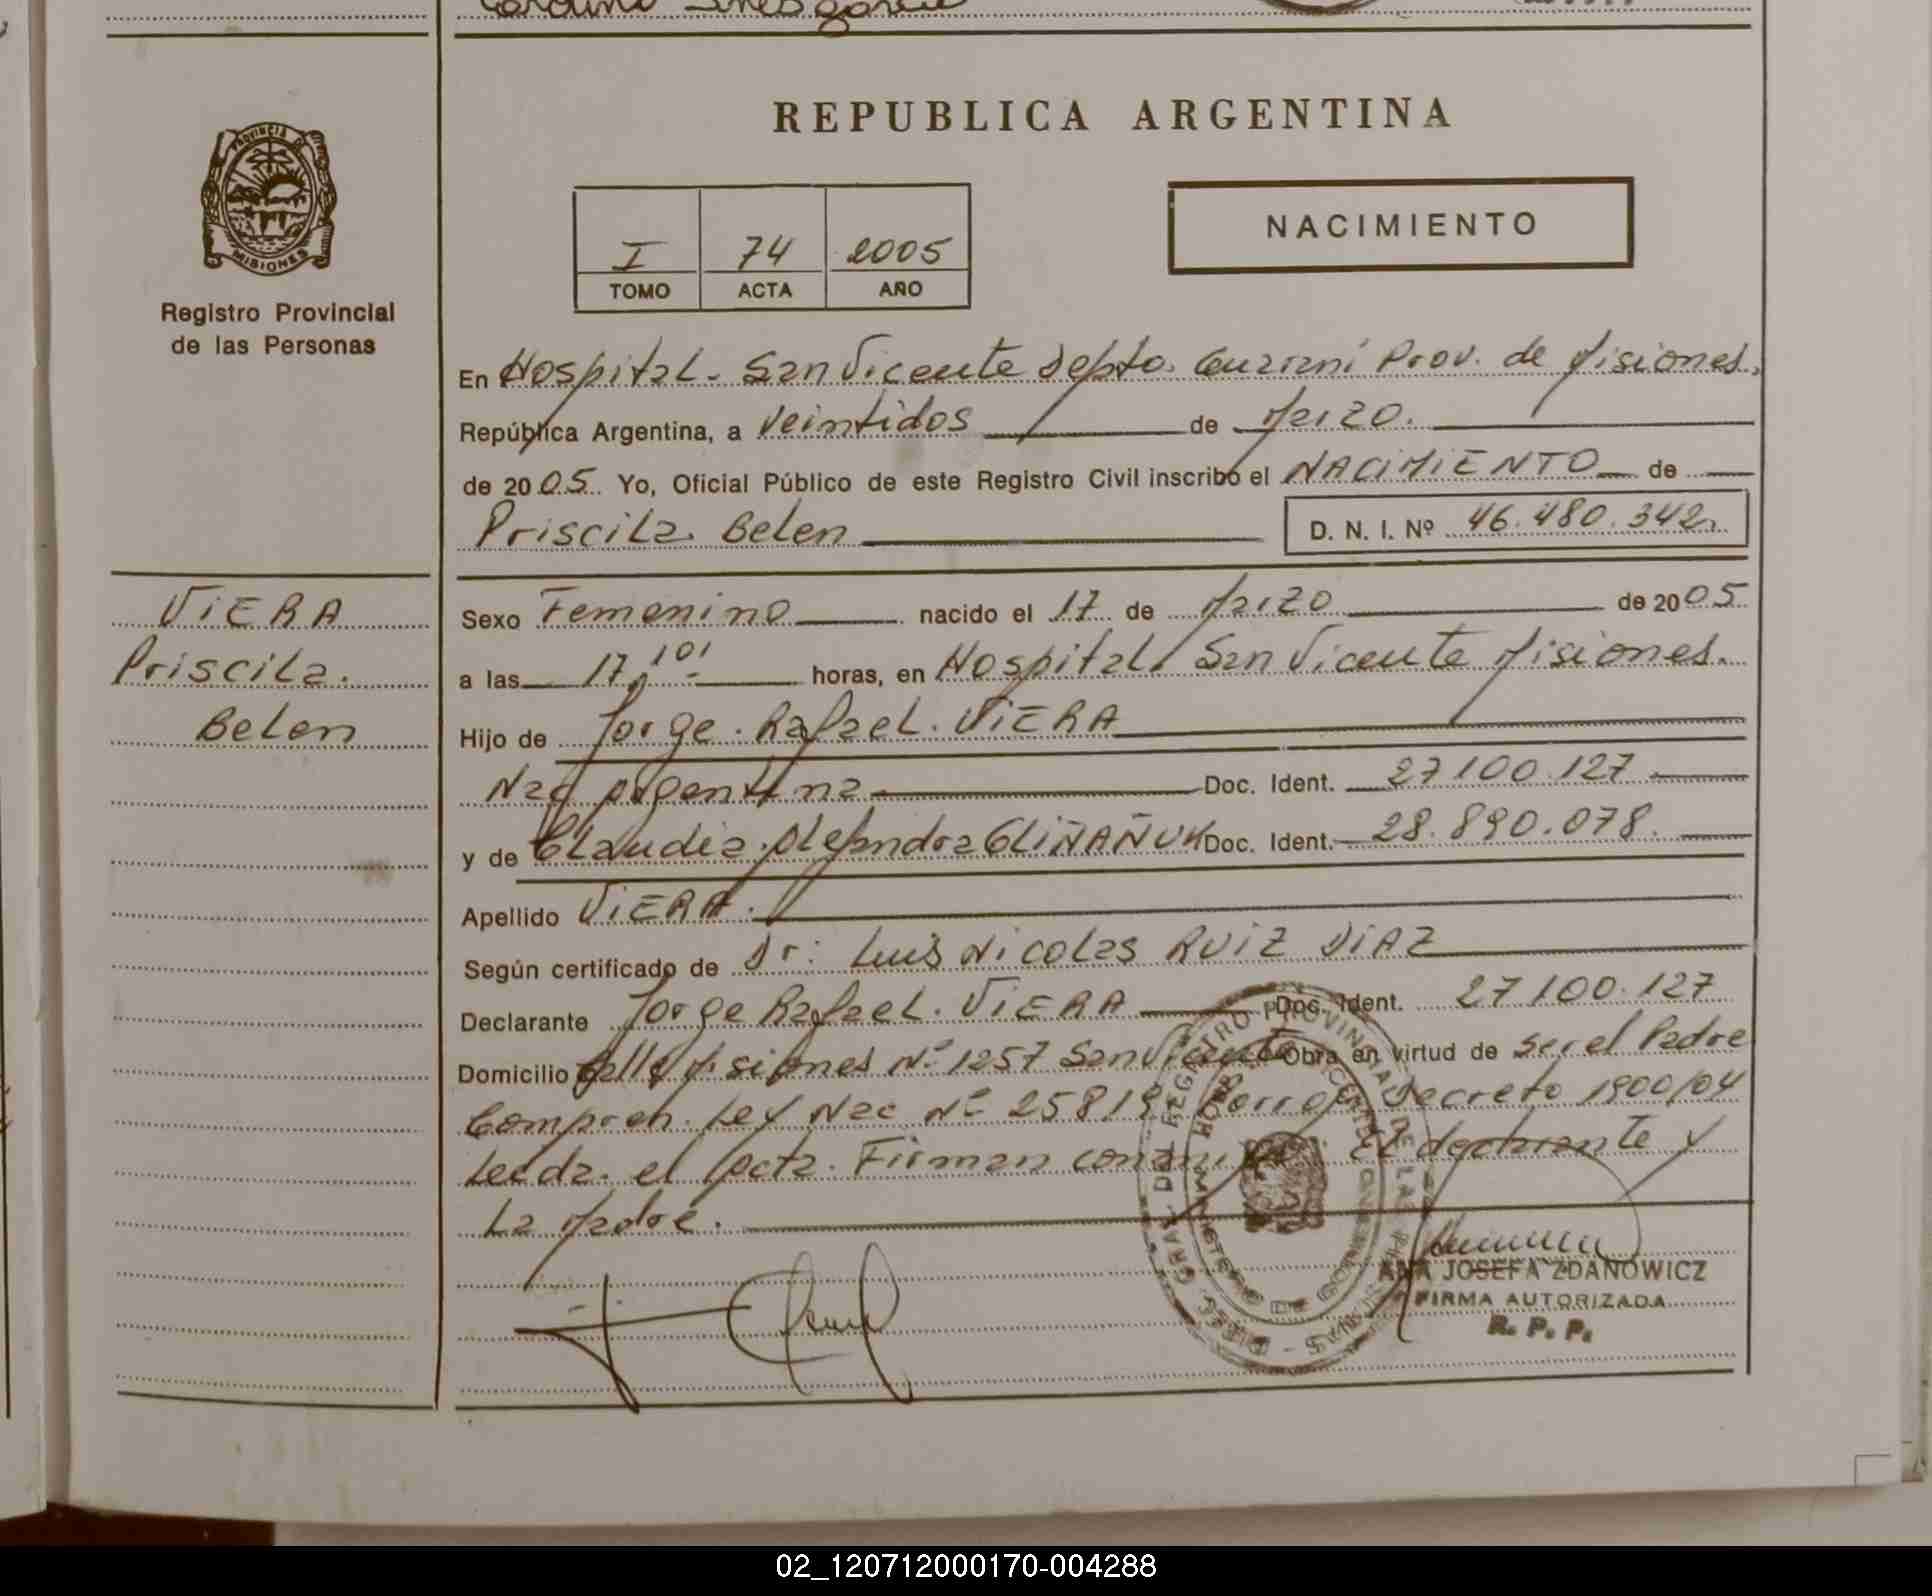 REPUBLICA ARGENTINA
PROVINCIA DE
MISIONES
Registro Provincial
de las Personas
NACIMIENTO
I 74 2005
TOMO ACTA AÑO
En Hospital. San Vicente Depto. Guaraní Prov. de Misiones,
República Argentina, a Veintidos de Marzo.
de 2005. Yo, Oficial Público de este Registro Civil inscribo el NACIMIENTO de
Priscila Belen D. N. I. Nº 46.480.342
VIERA
Priscila.
Belen
Sexo Femenino nacido el 17 de Marzo de 2005
a las 17,10' horas, en Hospital. San Vicente Misiones.
Hijo de Jorge. Rafael. VIERA
Nac Argentina Doc. Ident. 27.100.127
y de Claudia. Alejandra GLIÑAÑUK Doc. Ident. 28.890.078.
Apellido VIERA.
Según certificado de Dr: Luis Nicolas RUIZ DIAZ
Declarante Jorge Rafael. VIERA Doc. Ident. 27.100.127
Domicilio Calle Misiones Nº 1257 San Vicente Obra en virtud de ser el Padre
Compren. Ley Nac Nº 25819 Prorroga Decreto 1900/04
Leida. el Acta. Firman conmigo El declarante y
La Madre.
ANA JOSEFA ZDANOWICZ
FIRMA AUTORIZADA
R. P. P.
02_120712000170-004288